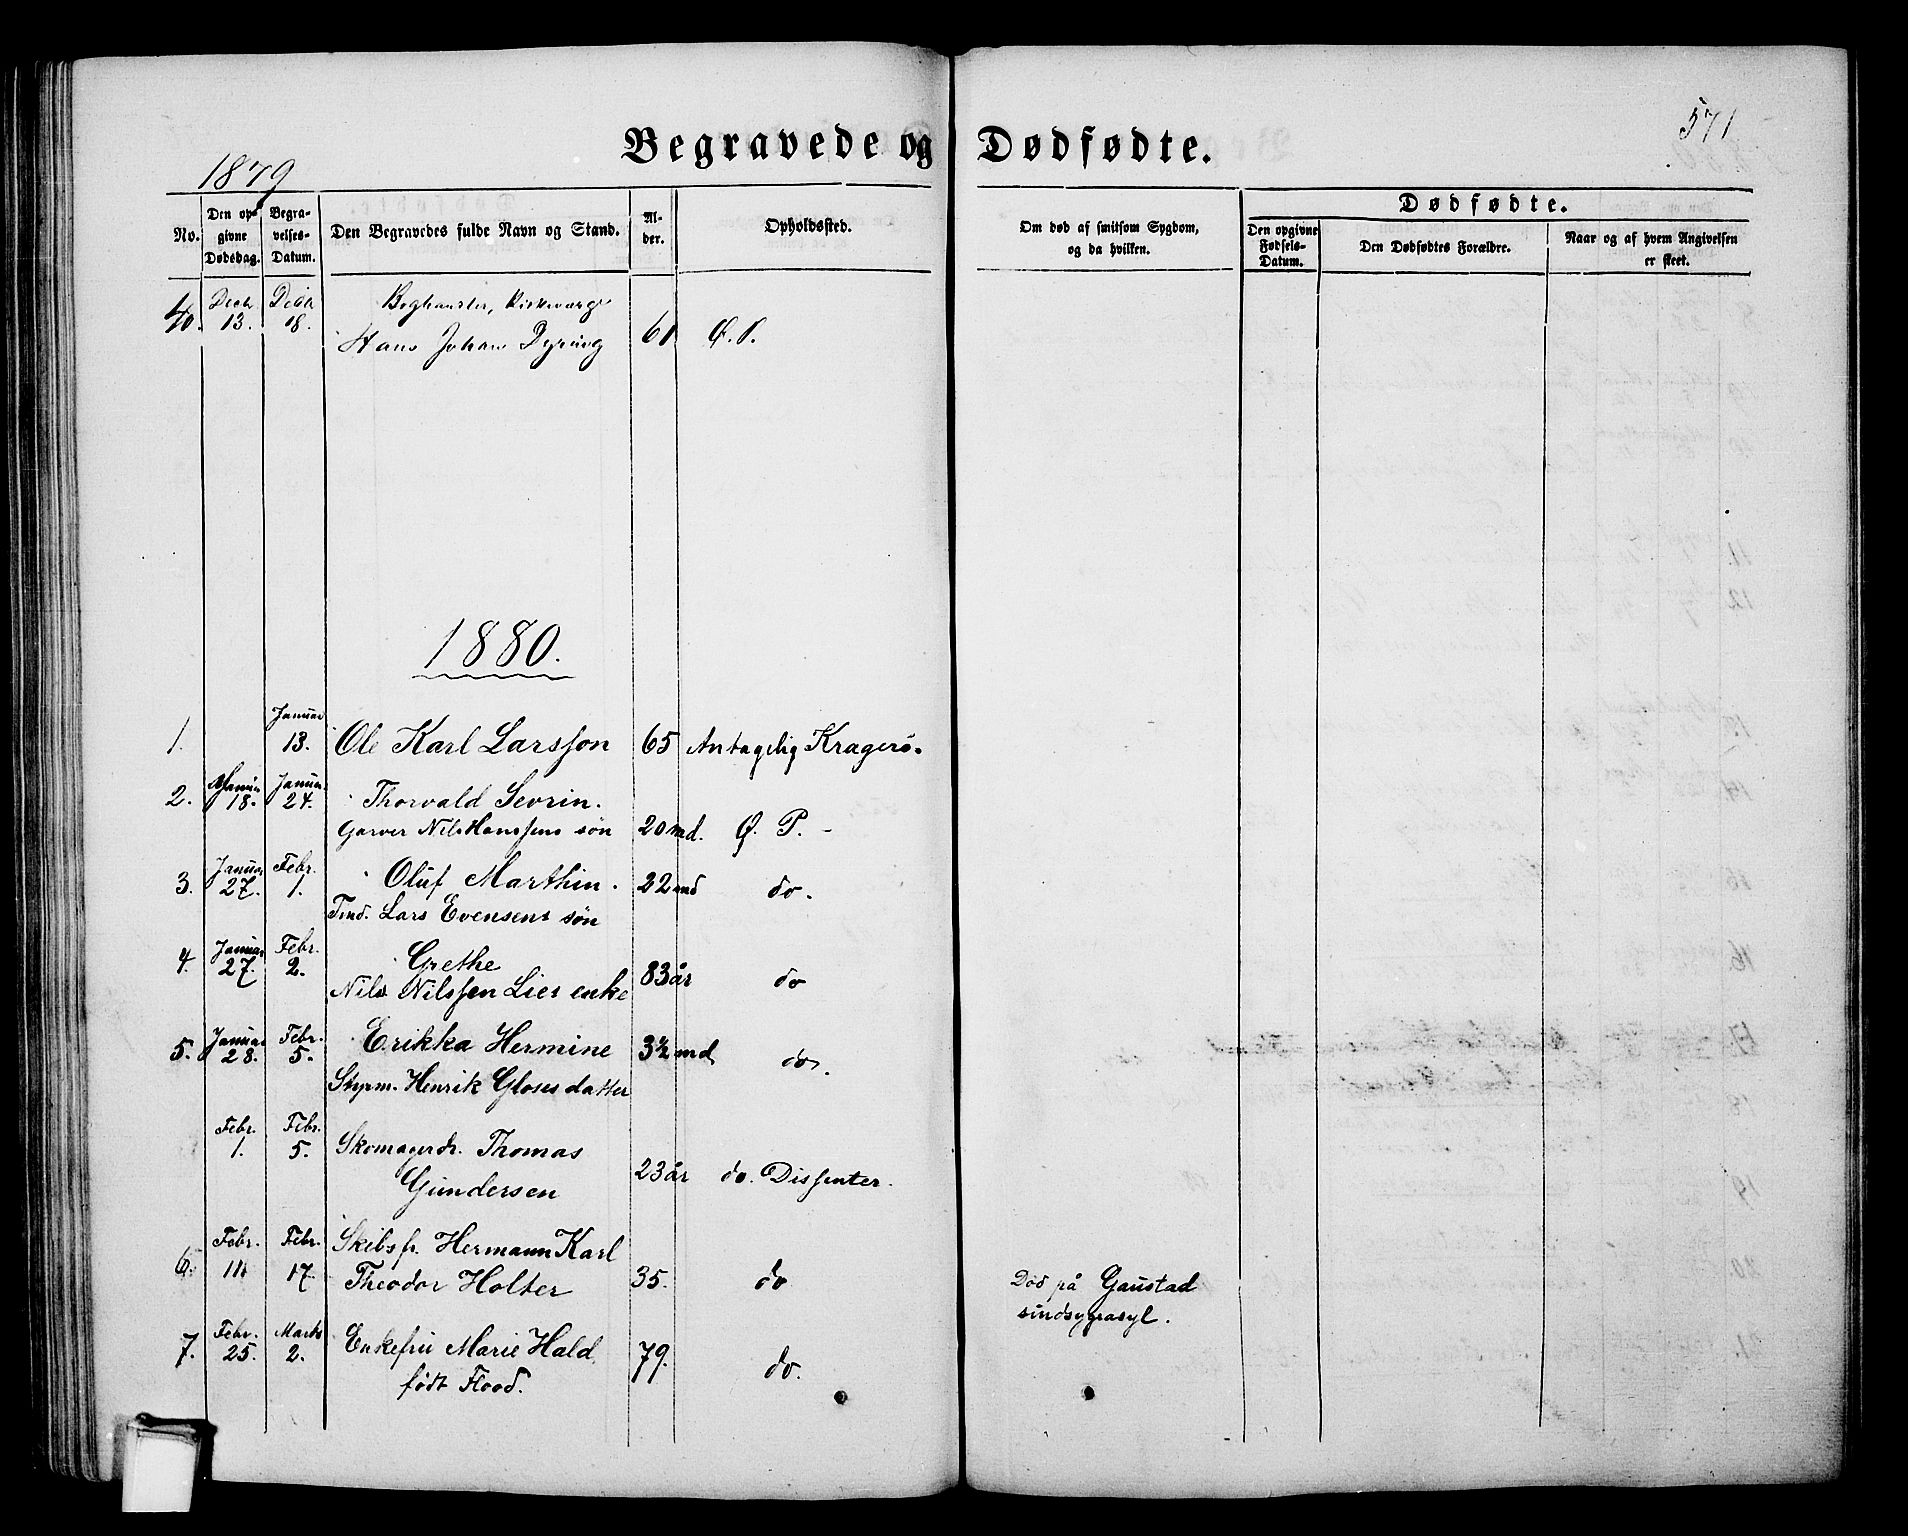 571
Begravede og Dødfødte.
1879
No.
Den opgivne Dødsdag.
Begravelses-Datum.
Den Begravedes fulde Navn og Stand.
Alder.
Opholdssted.
Om død af smitsom Sygdom, og da hvilken.
Dødfødte.
Den opgivne Fødsels-Datum.
Den Dødfødtes Forældre.
Naar og af hvem Angivelsen er skeet.
40. Decbr 13. 18. Boghandler, Kirkeværge
Hans Johan Dyring 61 Ø. P.
1880.
1. Januar 13. Ole Karl Larsson 65 Antagelig Kragerö.
2. Januar 18. Januar 24. Thorvald Sevrin.
Garver Nils Hanssens søn 20 md. Ø. P. -
3. Januar 27. Febr. 1. Oluf Marthin.
Tmd. Lars Evensens søn 22 md do.
4. Januar 27. Febr. 2. Grethe
Nils Nilssen Lies enke 83 år do
5. Januar 28. Febr. 5. Erikka Hermine 3½ md
Styrm. Henrik Gloses datter do.
Febr. 1. Febr. 5. Skomagerdr. Thomas
Gundersen 23 år do. Dissenter.
6. Febr. Febr. 17. Skibsfr. Hermann Karl
Theodor Holter 35. do Död på Gaustad
sindsygeasyl.
7. Febr. 25. Marts 2. Enkefru Marie Hald
født Flood. 79. do.